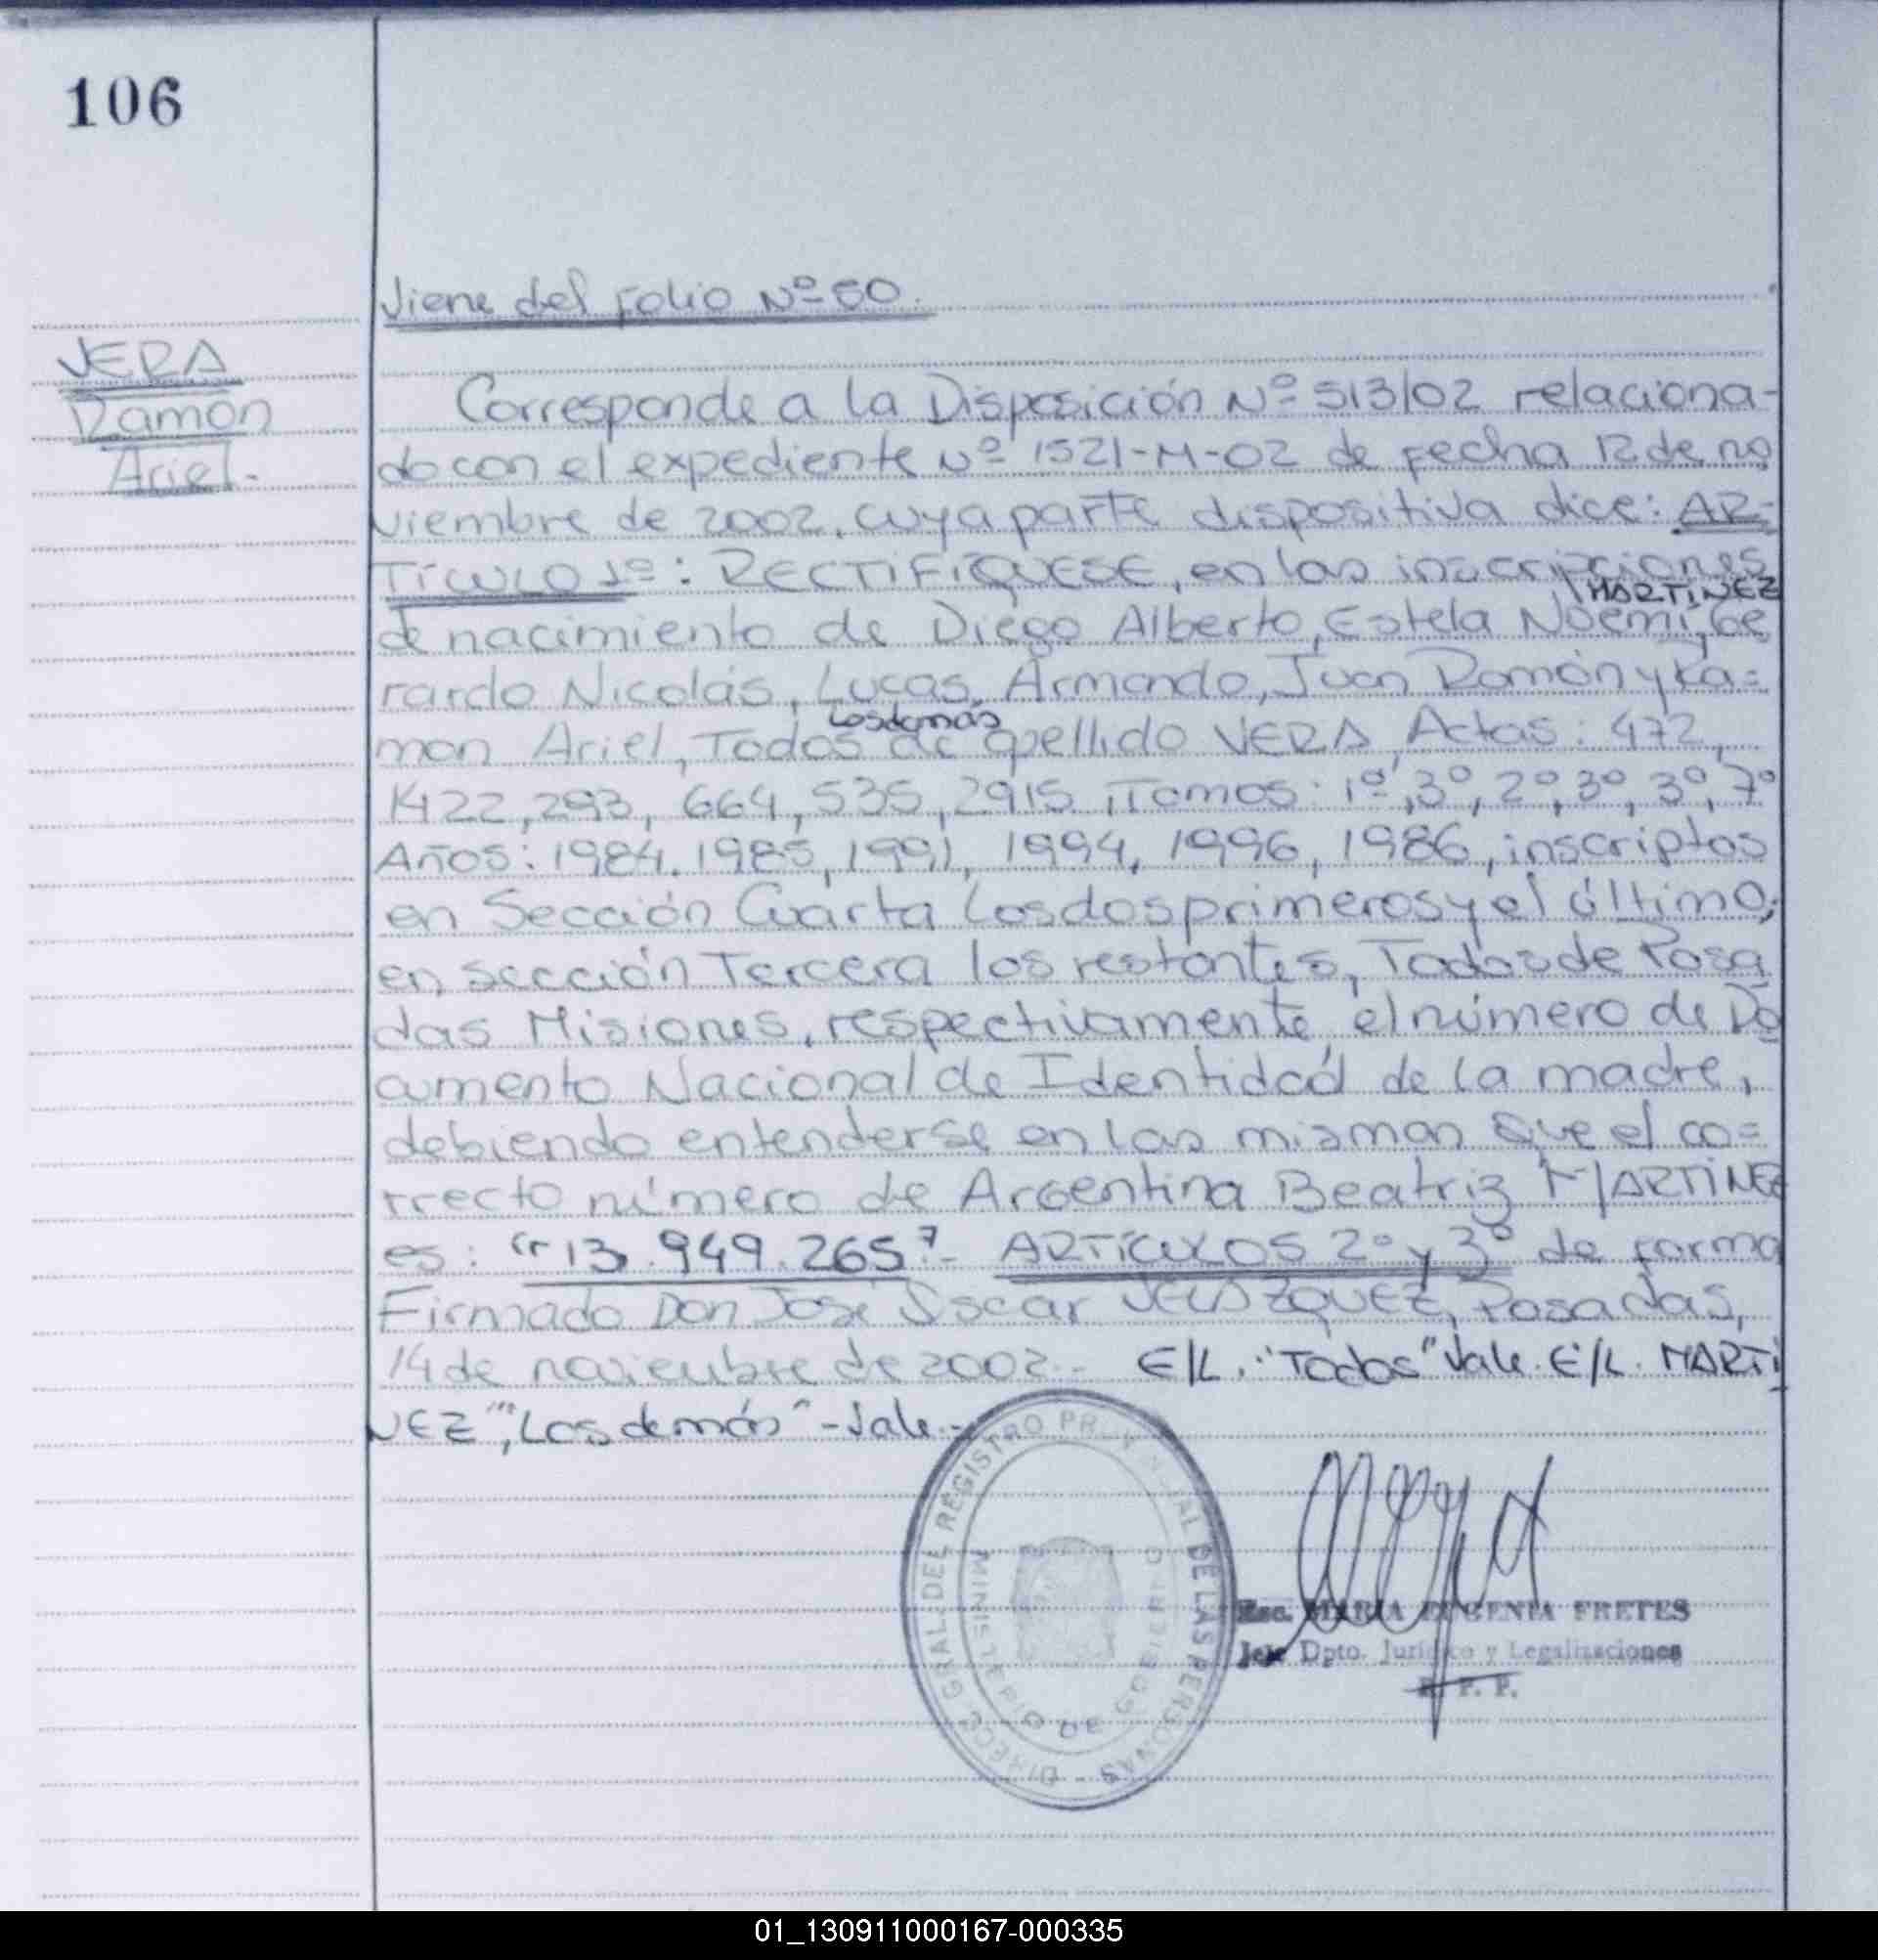 106
Viene del folio Nº 50.
VERA
Ramón
Ariel.-
Corresponde a la Disposición Nº 513/02 relaciona-
do con el expediente Nº 1521-M-02 de fecha 12 de no
viembre de 2002, cuya parte dispositiva dice: AR-
TÍCULO 1º: RECTIFÍQUESE, en las inscripciones
MARTINEZ
de nacimiento de Diego Alberto, Estela Noemí, Ge
rardo Nicolás, Lucas Armando, Juan Ramón y Ra=
Los demás
mon Ariel, Todos de apellido VERA, Actas: 472,
1422, 293, 664, 535, 2915, Tomos: 1º, 3º, 2º, 3º, 3º, 7º
Años: 1984, 1985, 1991, 1994, 1996, 1986, inscriptos
en Sección Cuarta los dos primeros y el último,
en sección Tercera los restantes, Todos de Posa
das Misiones, respectivamente, el número de Do
cumento Nacional de Identidad de la madre,
debiendo entenderse en las mismas que el co=
rrecto número de Argentina Beatriz MARTINEZ
es: "13.949.265".- ARTÍCULOS 2º y 3º de forma
Firmado Don José Oscar VELAZQUEZ, Posadas,
14 de noviembre de 2002.- E/L. "Todos" Vale. E/L. MARTI
NEZ", "Los demás" - Vale.-
DIRECC. GRAL. DEL REGISTRO PROVINCIAL DE LAS PERSONAS
MINISTERIO DE GOBIERNO
Esc. MARIA EUGENIA FRETES
Jefe Dpto. Jurídico y Legalizaciones
R. P. P.
01_130911000167-000335